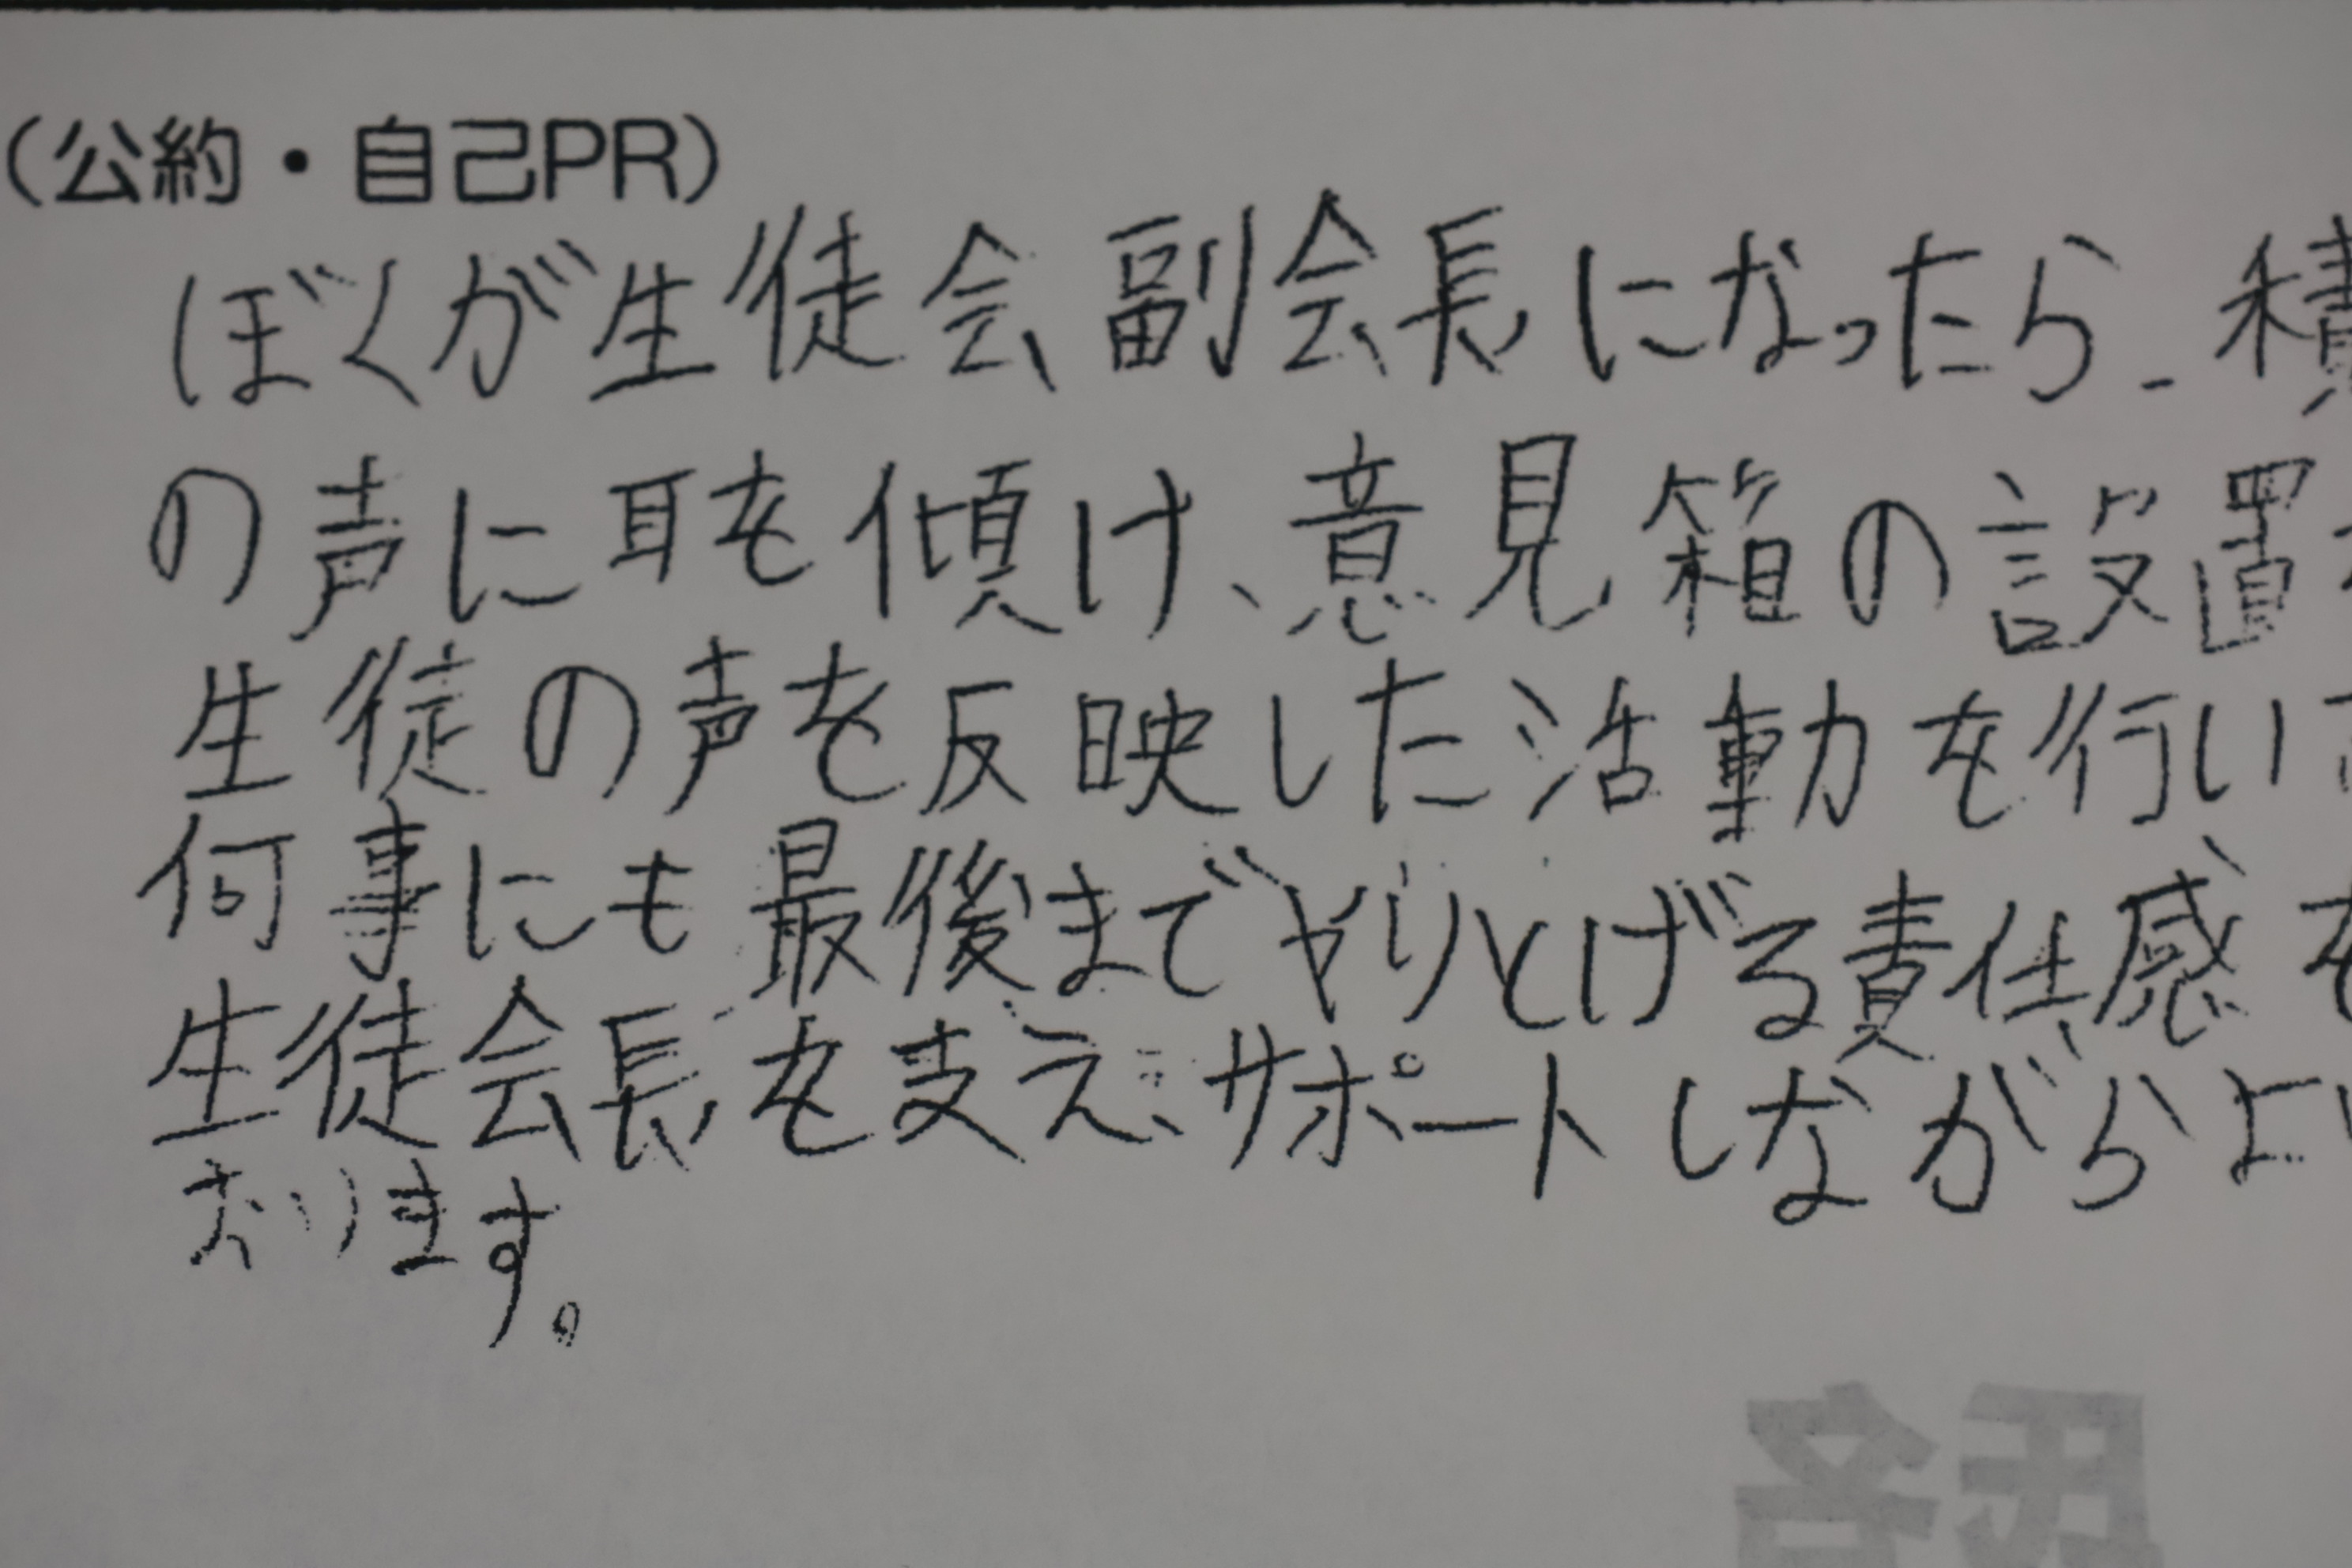 (公約・自己PR)
ぼくが生徒会副会長になったら、積
の声に耳を傾け、意見箱の設置
生徒の声を反映した活動を行い
何事にも最後までやりとげる責任感を
生徒会長を支え、サポートしながらよ
おります。